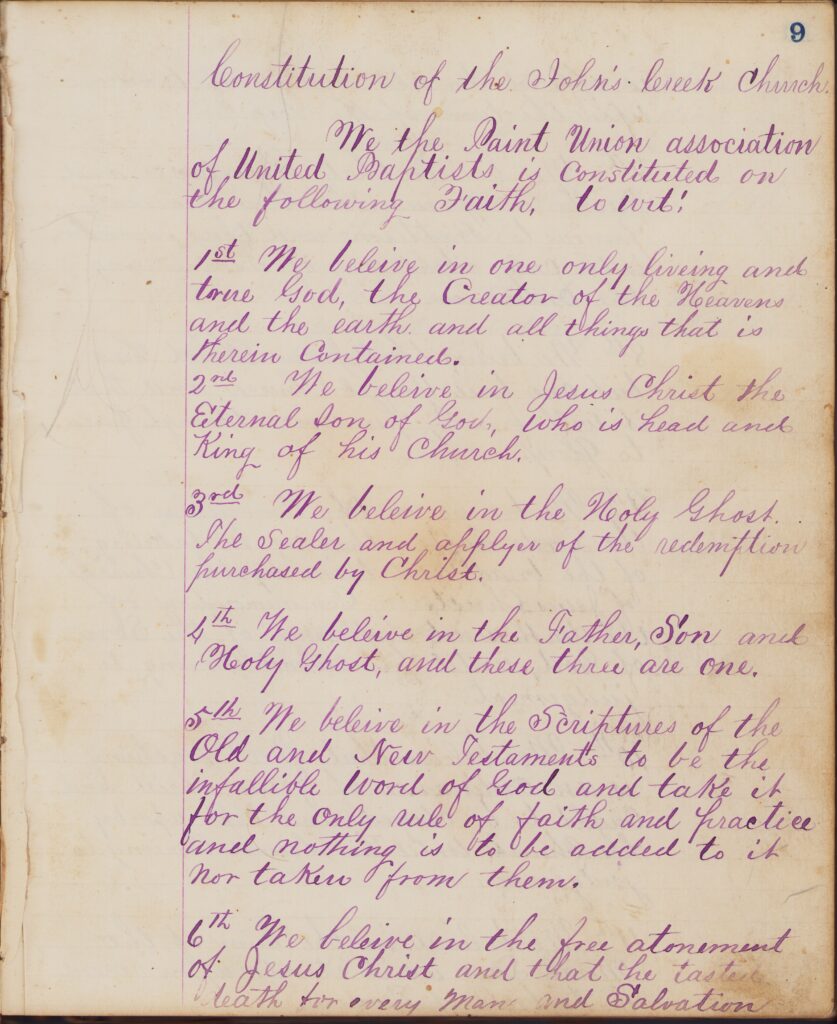 9
Constitution of the John's Creek Church.
We the Paint Union association
of United Baptists is Constituted on
the following Faith, to wit:
1st We beleive in one only liveing and
true God, the Creator of the Heavens
and the earth and all things that is
therein Contained.
2nd We beleive in Jesus Christ the
Eternal Son of God, who is head and
King of his Church.
3rd We beleive in the Holy Ghost.
The Sealer and applyer of the redemption
purchased by Christ.
4th We beleive in the Father, Son and
Holy Ghost, and these three are one.
5th We beleive in the Scriptures of the
Old and New Testaments to be the
infallible word of God and take it
for the only rule of faith and practice
and nothing is to be added to it
nor taken from them.
6th We beleive in the free atonement
of Jesus Christ and that he tasted
death for every man and Salvation